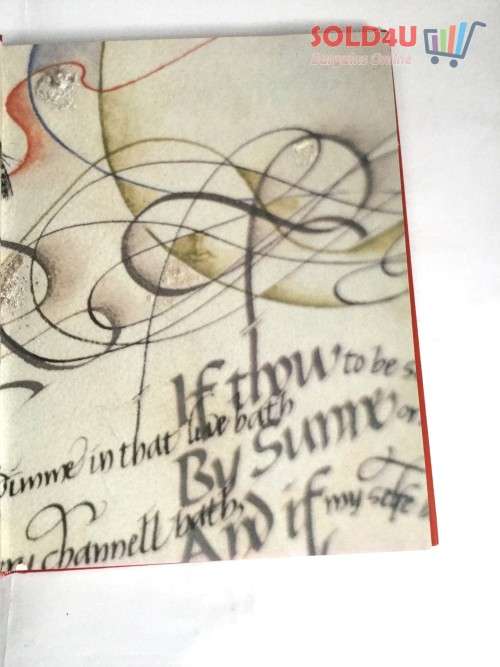 SOLD4U
Online
If thou to be s
wimme in that live bath
By Sunne or
ery channell hath,
And if my selfe